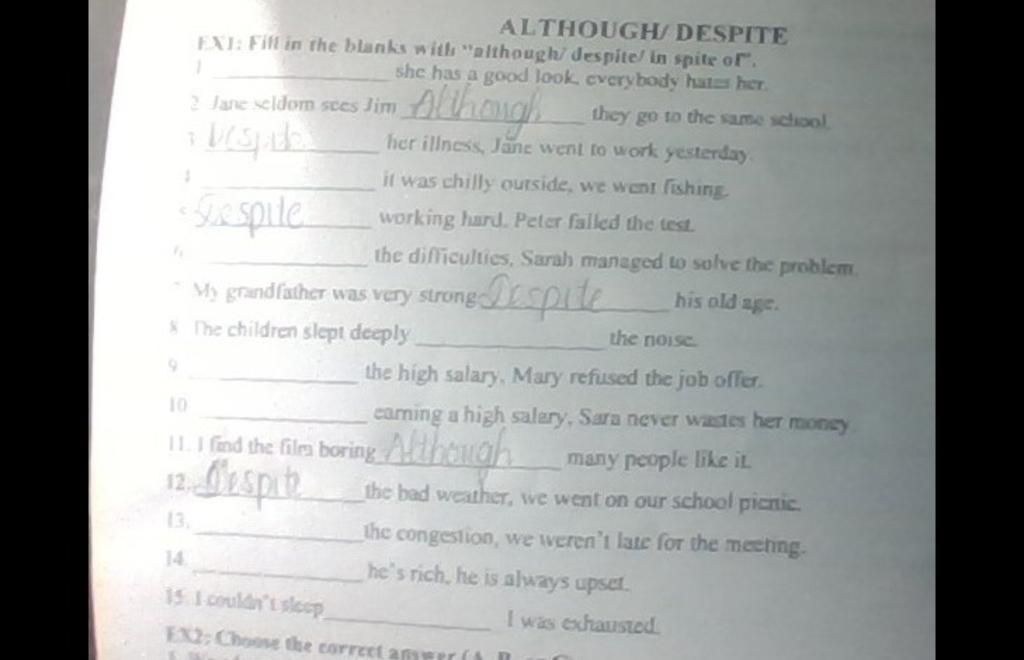 ALTHOUGH/ DESPITE
EX1: Fill in the blanks with "although/ despite/ in spite of".
1 ____________ she has a good look, everybody hates her.
2 Jane seldom sees Jim Although they go to the same school.
3 Despite her illness, Jane went to work yesterday.
4 ____________ it was chilly outside, we went fishing.
5 Despite working hard, Peter failed the test.
6 ____________ the difficulties, Sarah managed to solve the problem.
7 My grandfather was very strong Despite his old age.
8 The children slept deeply ____________ the noise.
9 ____________ the high salary, Mary refused the job offer.
10 ____________ earning a high salary, Sara never wastes her money
11. I find the film boring Although many people like it.
12. Despite the bad weather, we went on our school picnic.
13. ____________ the congestion, we weren't late for the meeting.
14. ____________ he's rich, he is always upset.
15. I couldn't sleep ____________ I was exhausted.
EX2: Choose the correct answer (A, B,